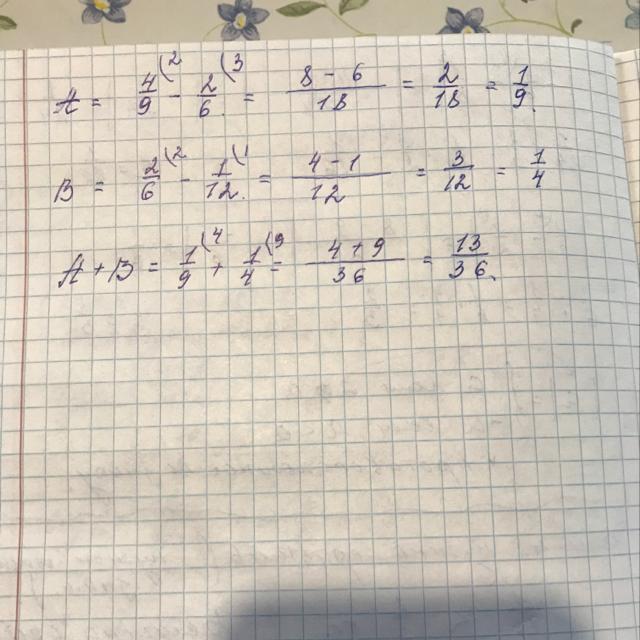 A = 4/9(2 - 2/6(3 = 8-6/18 = 2/18 = 1/9.
B = 2/6(2 - 1/12(1 = 4-1/12 = 3/12 = 1/4
A+B = 1/9(4 + 1/4(9 = 4+9/36 = 13/36.